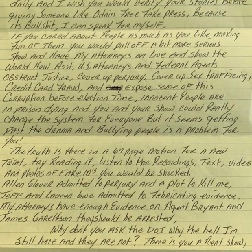 daily And I wish you would verify your stories before
giving someone like Allen Free Press, because
it Bullshit, I can speak for myself.
IF you cared about People as much as you like making
fun of Them, you would pull off a bit more serious
Show and Have My Attorneys on live and show the
World How Prosecutors, US Attorneys and Federal Agents
Obstruct Justice, Cover up perjury, Cover up Sex trafficking,
Credit Card Fraud, and expose some of this
Corruption before election time, Innocent People are
in prison dying and you and your show could Really
change the system for Everyone But it seems getting
VIEWS the drama and Bullying people is a problem for
you.
The truth is there in a page Motion For a New
Trial, try Reading it, listen to the Recordings, Text, videos
and Photos of Fake ID! You would be Shocked.
Allen Glover admitted to perjury and a plot to kill me,
Jeff and Lowe have admitted to fabricating evidence.
My Attorneys have Enough Evidence on Agent Bryant and
James Garretson they should be arrested,
Why dont you ask the DOJ why the hell Im
Still here and they are not? There is you a Real story,